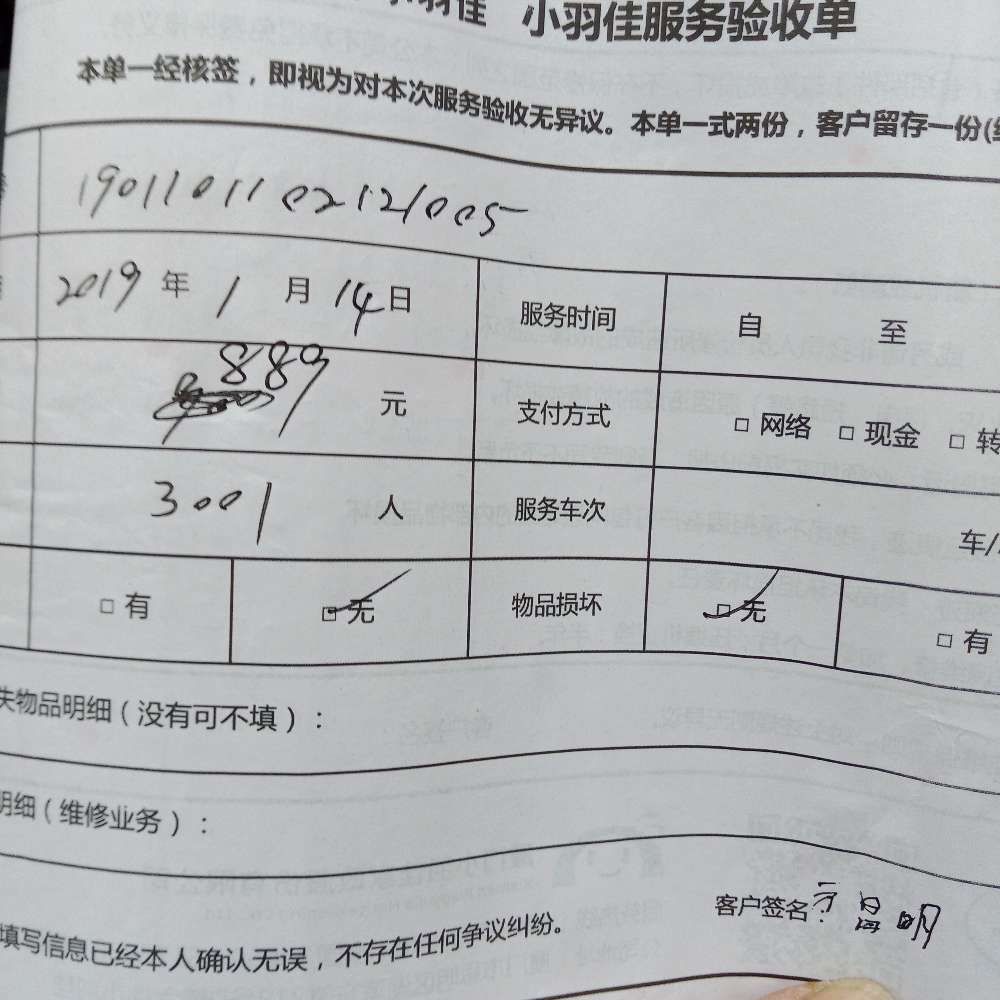 小羽佳服务验收单
本单一经核签，即视为对本次服务验收无异议。本单一式两份，客户留存一份(
1901101102121005
2019 年 1 月 14 日 服务时间 自 至
889 元 支付方式 □ 网络 □ 现金 □ 转
3001 人 服务车次 车/
□ 有 □ 无 物品损坏 □ 无 □ 有
失物品明细（没有可不填）：
明细（维修业务）：
客户签名：
填写信息已经本人确认无误，不存在任何争议纠纷。